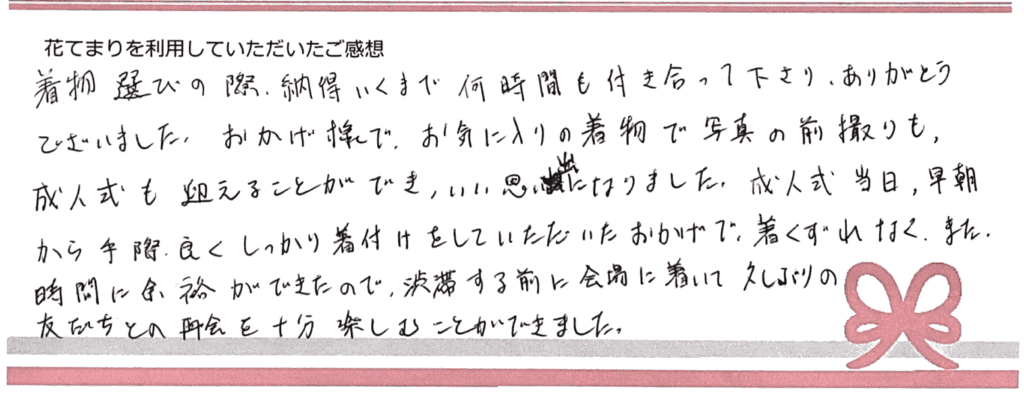 花てまりを利用していただいたご感想
着物選びの際、納得いくまで何時間も付き合って下さり、ありがとう
ございました。おかげ様で、お気に入りの着物で写真の前撮りも、
成人式も迎えることができ、いい思い出になりました。成人式当日、早朝
から手際良くしっかり着付けをしていただいたおかげで、着くずれなく、また、
時間に余裕ができたので、渋滞する前に会場に着いて久しぶりの
友だちとの再会を十分楽しむことができました。